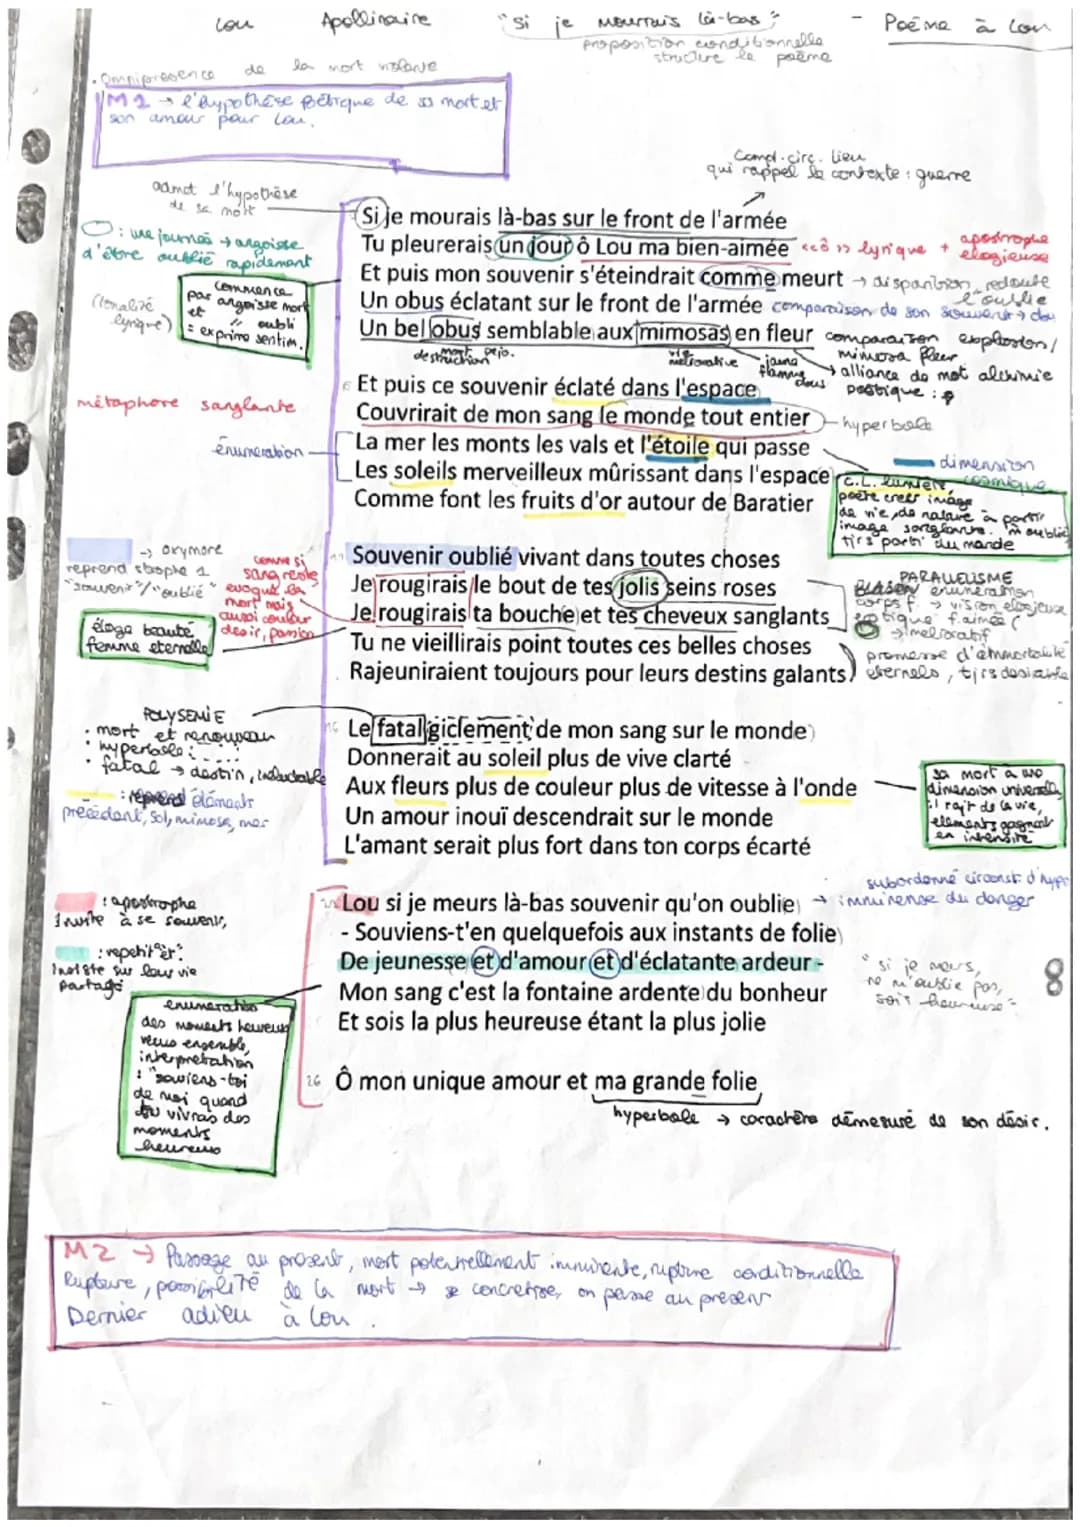 Lou Apollinaire "Si je mourrais là-bas" - Poème à Lou
proposition conditionnelle
structure le poème
. Omniprésence de la mort violente
M1 → l'hypothèse poétique de sa mort et
son amour pour Lou.
Compl. circ. lieu
qui rappel le contexte : guerre
admet l'hypothèse
de sa mort
Si je mourais là-bas sur le front de l'armée
: une journée → angoisse
d'être oublié rapidement
Tu pleurerais un jour ô Lou ma bien-aimée
<<ô>> lyrique + apostrophe
élogieuse
Et puis mon souvenir s'éteindrait comme meurt
→ disparition, redoute
l'oublie
(tonalité
lyrique)
commence
par angoisse mort
et // oubli
= exprime sentim.
Un obus éclatant sur le front de l'armée
comparaison de son souvenir →
Un bel obus semblable aux mimosas en fleur
comparaison explosion/
mimosa fleur
mort péjo.
destruction
vie
méliorative
jaune
flamme
→ alliance de mot alchimie
poétique :
Et puis ce souvenir éclaté dans l'espace
métaphore sanglante
Couvrirait de mon sang le monde tout entier
hyperbole
énumération
La mer les monts les vals et l'étoile qui passe
dimension
cosmique
Les soleils merveilleux mûrissant dans l'espace
Comme font les fruits d'or autour de Baratier
C.L. lumière,
poète créer image
de vie, de nature à partir
image sanglante.
tjrs parti du monde
→ oxymore
reprend strophe 1
"souvenir"/"oublié"
Souvenir oublié vivant dans toutes choses
comme si
sang reste
évoque la
mort mais
aussi couleur
désir, passion
Je rougirais le bout de tes jolis seins roses
Je rougirais ta bouche et tes cheveux sanglants
PARALLELISME
BLASON énumération
corps f. → vision élogieuse
f. aimée
→ mélioratif
éloge beauté
femme eternelle
Tu ne vieillirais point toutes ces belles choses
Rajeuniraient toujours pour leurs destins galants
promesse d'immortalité
éternels, tjrs désirable
POLYSEMIE
. mort et renouveau
. hyperbole :
. fatal → destin, inéluctable
Le fatal giclement de mon sang sur le monde
Donnerait au soleil plus de vive clarté
: reprend éléments
précédent, sol, mimosa, mer
Aux fleurs plus de couleur plus de vitesse à l'onde
Un amour inouï descendrait sur le monde
L'amant serait plus fort dans ton corps écarté
sa mort a une
dimension universelle
il rajt de la vie,
elements gagnent
en intensité
subordonné circonst. d'hypo
→ imminense du danger
: apostrophe
Invite à se souvenir,
Lou si je meurs là-bas souvenir qu'on oublie
- Souviens-t'en quelquefois aux instants de folie
: repetit° "et"
Insiste sur leur vie
partagé
De jeunesse et d'amour et d'éclatante ardeur -
Mon sang c'est la fontaine ardente du bonheur
Et sois la plus heureuse étant la plus jolie
"si je meurs,
ne m'oublie pas,
sois heureuse"
8
énumération
des moments heureux
vécus ensemble,
interprétation
: "souviens-toi
de moi quand
tu vivras des
moments
heureux
26 Ô mon unique amour et ma grande folie
hyperbole → caractère démesuré de son désir.
M2 → Passage au présent, mort potentiellement imminente, rupture conditionnelle
Rupture, possibilité de la mort → se concrétise, on passe au présent
Dernier adieu à Lou.